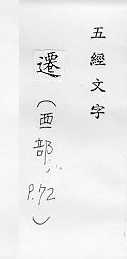 五經文字
遷（襾部
P.72）